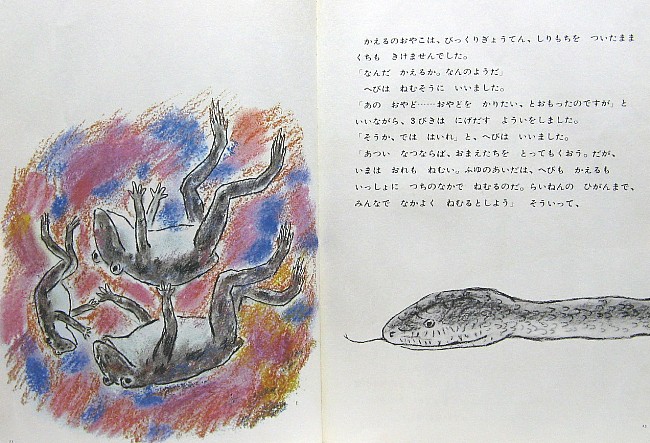 かえるのおやこは、びっくりぎょうてん、しりもちを ついたまま
くちも きけませんでした。
「なんだ かえるか。なんのようだ」
へびは ねむそうに いいました。
「あの おやど……おやどを かりたい、とおもったのですが」と
いいながら、3びきは にげだす よういをしました。
「そうか、では はいれ」と、へびは いいました。
「あつい なつならば、おまえたちを とってもくおう。だが、
いまは おれも ねむい。ふゆのあいだは、へびも かえるも
いっしょに つちのなかで ねむるのだ。らいねんの ひがんまで、
みんなで なかよく ねむるとしよう」 そういって、